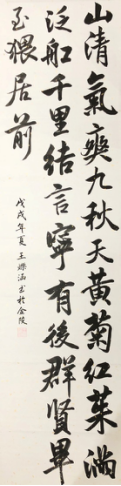 山清氣爽九秋天黃菊紅茱滿
泛船千里結言寧有後群賢畢
至猥居前
戊戌年夏王涵书於金陵